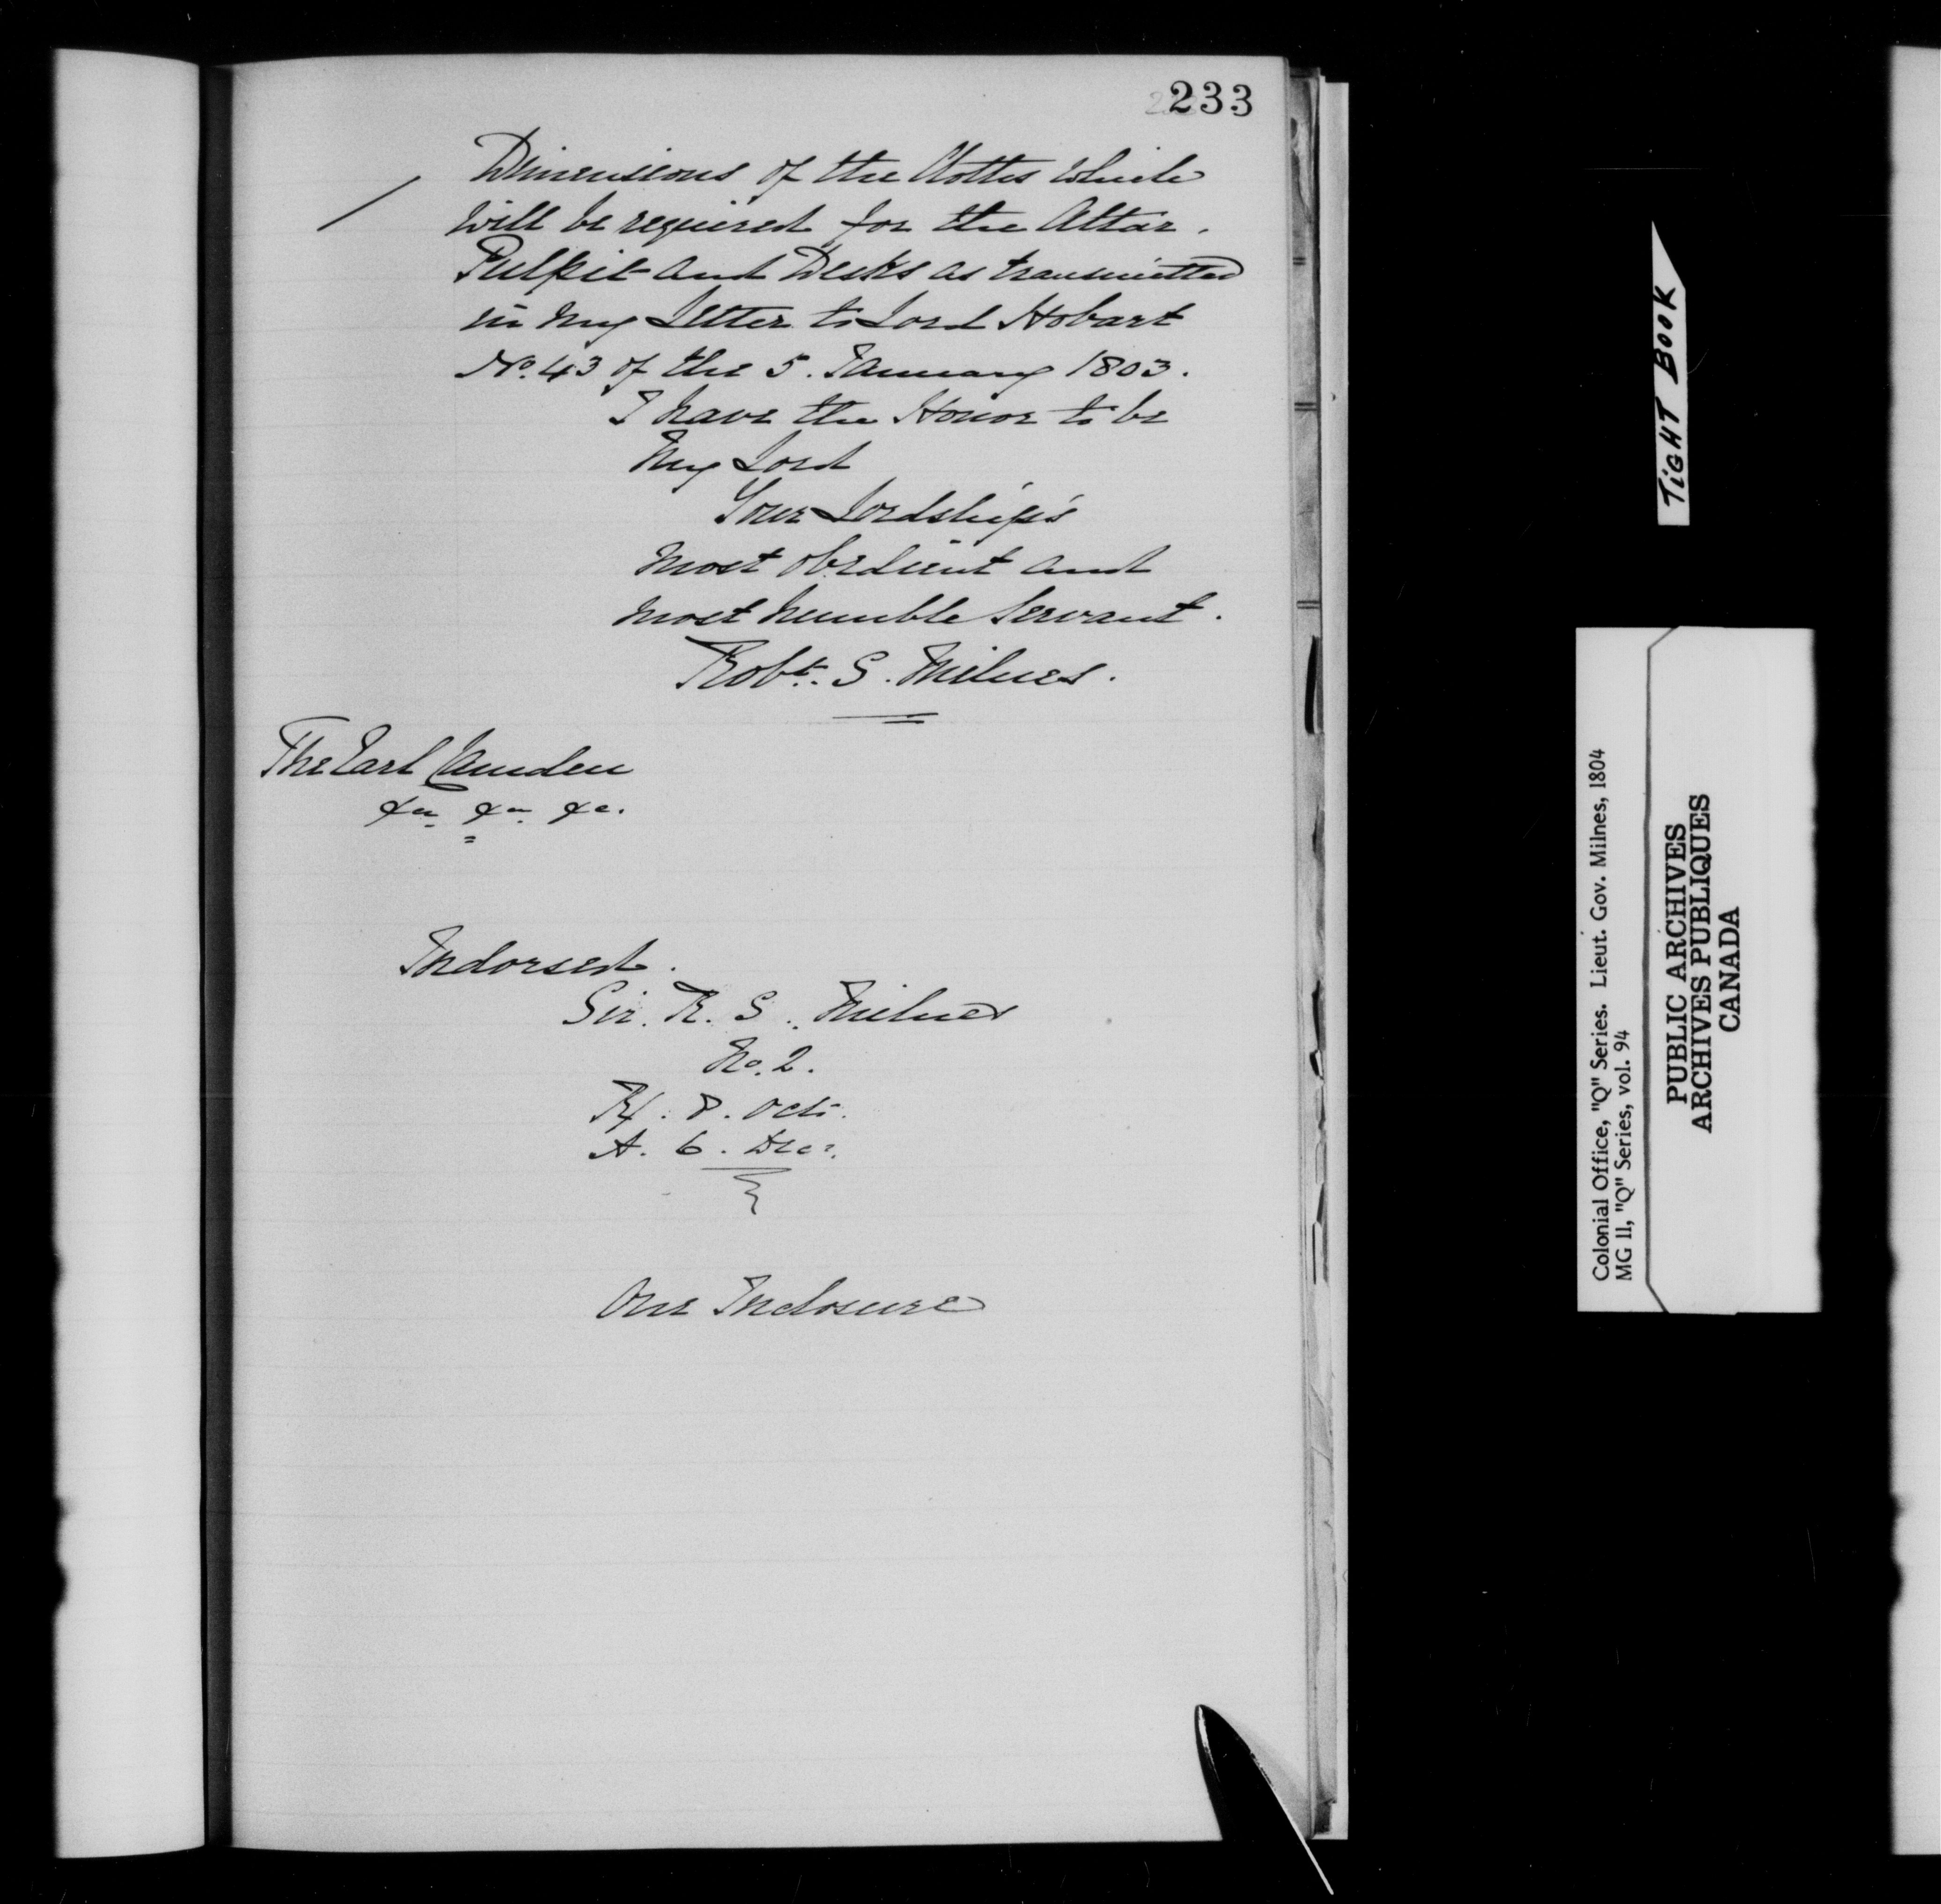 233
Dimensions of the Cloths which
will be required for the Altar.
Pulpit and Desks as transmitted
in my Letter to Lord Hobart
No. 43 of the 5. January 1803.
I have the Honor to be
My Lord
Your Lordship's
most obedient and
most humble Servant.
Robt. S. Milnes.
The Earl Camden
&c. &c. &c.
Indorsed.
Sir. R. S. Milnes
No. 2.
R/. 8. Octr.
A. 6. Decr.
One Inclosure
TIGHT BOOK
Colonial Office, "Q" Series. Lieut. Gov. Milnes, 1804
MG 11, "Q" Series, vol. 94
PUBLIC ARCHIVES
ARCHIVES PUBLIQUES
CANADA